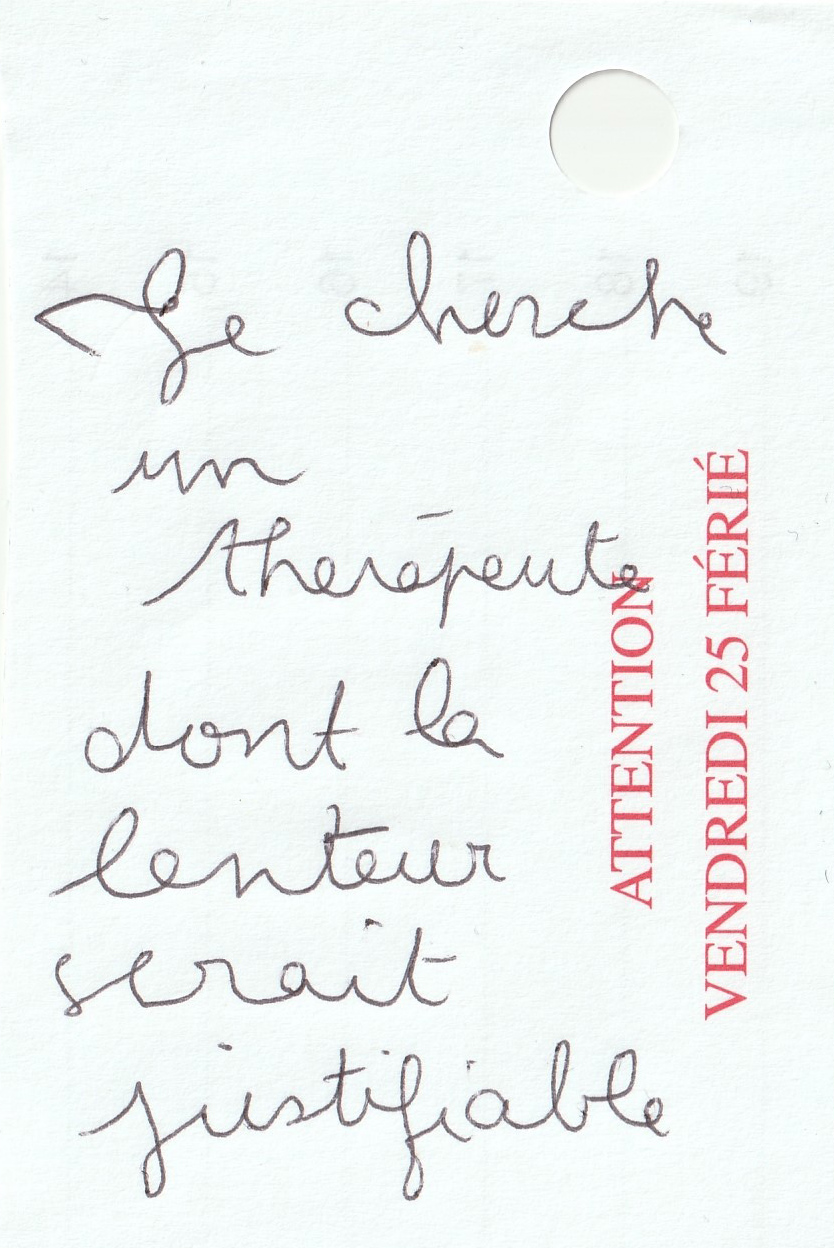 Je cherche
un
thérapeute
dont la
lenteur
serait
justifiable
ATTENTION
VENDREDI 25 FÉRIÉ